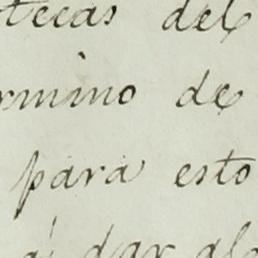 tecas del
rmino de
para esto
á dar alg